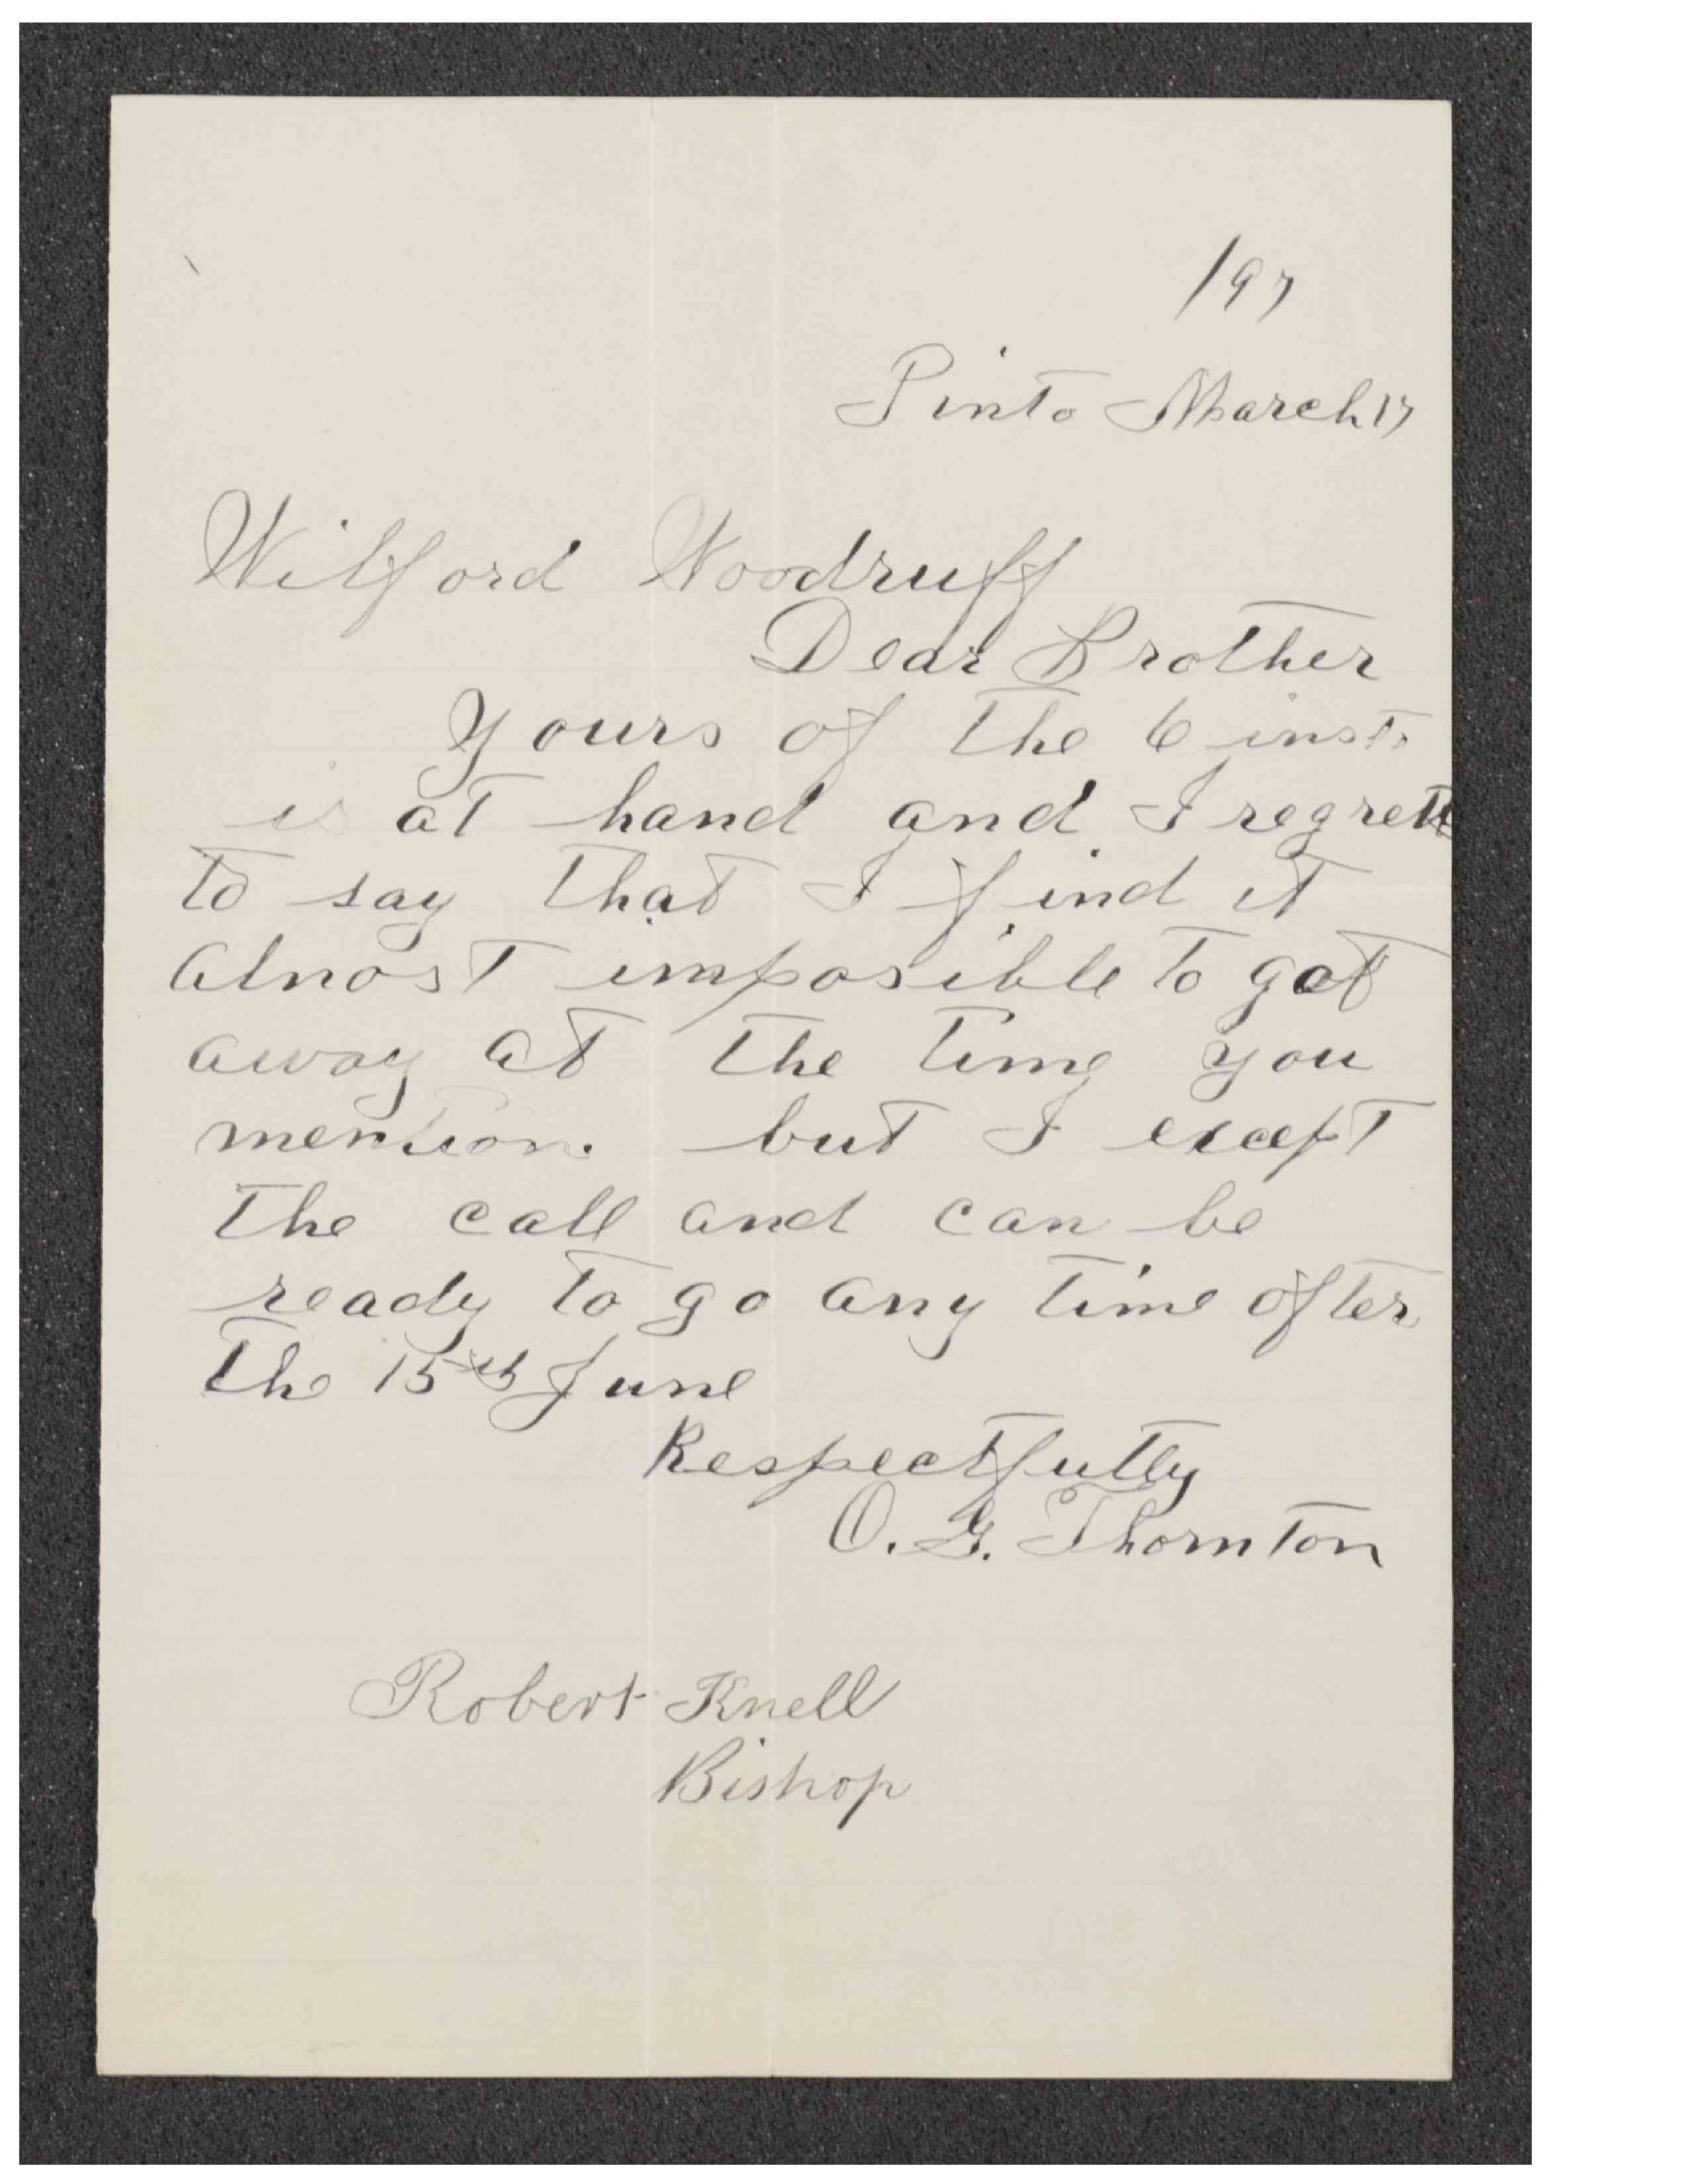 /97
Pinto March 17
Wilford Woodruff
Dear Brother
Yours of the 6 inst.
is at hand and I regrett
to say that I find it
almost imposible to get
away at the time you
mention. but I except
the call and can be
ready to go any time after
the 15th June
Respectfully
O. G. Thornton
Robert Knell
Bishop